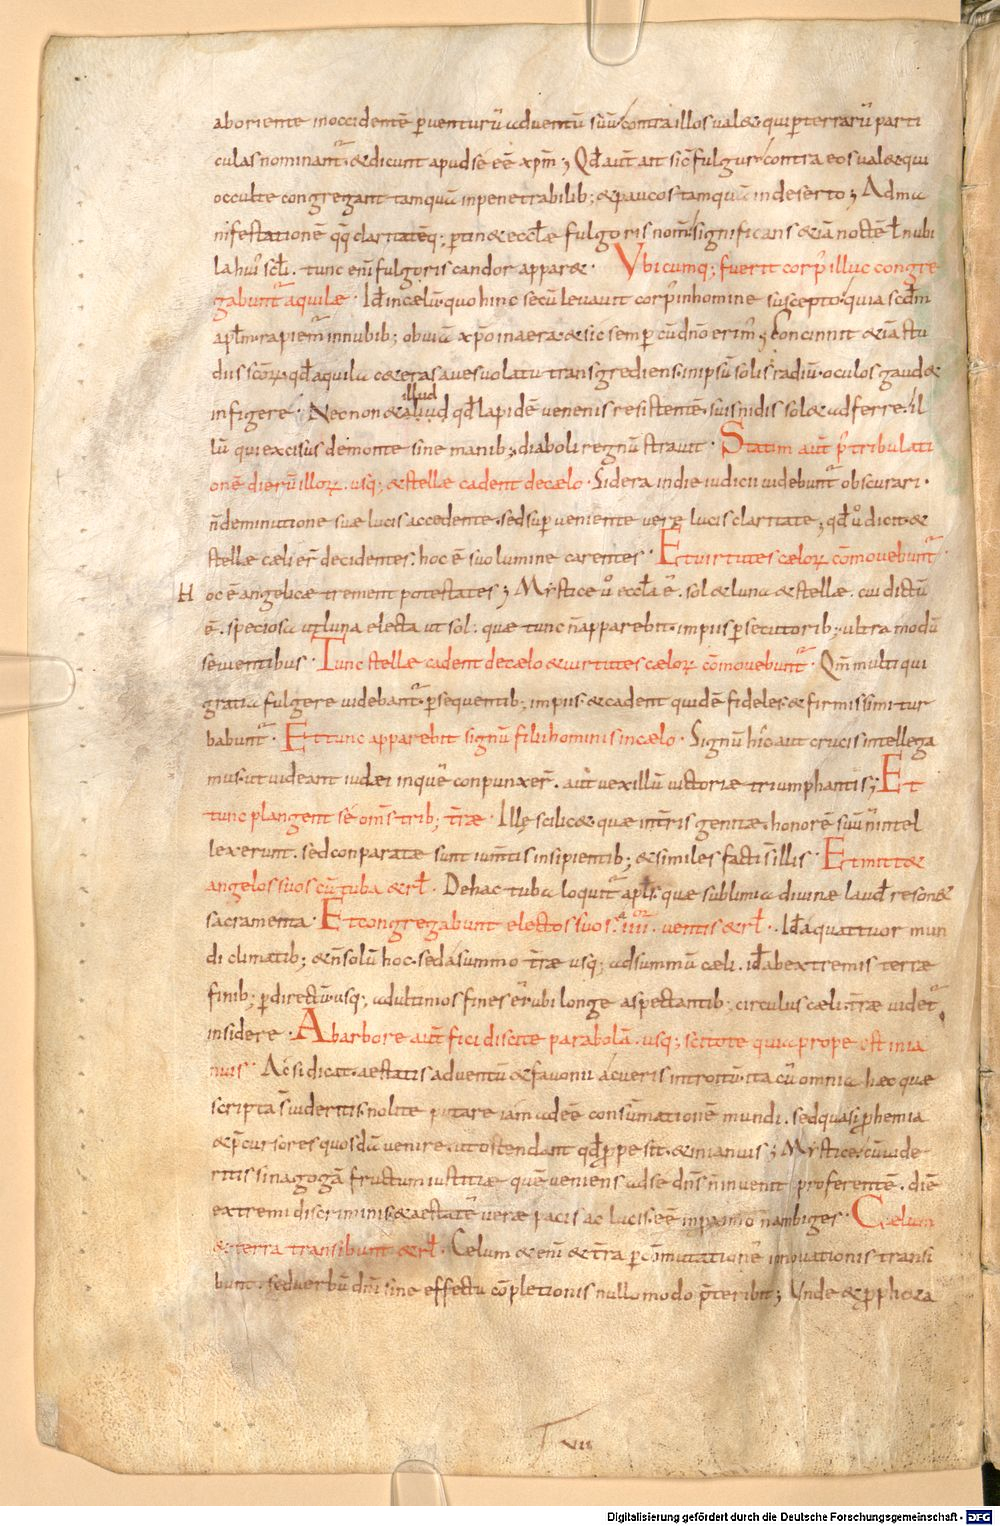 ab oriente in occidentē puenturū adventū suū contra illos valet qui p terrarū parti
culas nominant᷑ et dicunt apud sé eē xp̄m; Qđ aut̄ ait sic fulgur contra eos valet qui
occulte congregant tamquā inpenetrabilib; et paucos tamquā in deserto; Ad ma
nifestationē qq; claritatēq; et eccłæ fulgoris significans et iā noctē ł nubi
la scłi. tunc eni fulgoris candor apparet. Ubicumq; fuerit corp᾽ illuc congre
gabunt᷑ aquilæ. Id in cælū quo hinc secū levavit corp᾽ in homine suscepto quia scdm
apłm rapiem᾽ in nubib; obviā xp̄o in aera et sic semp cū dn̄o erim᾽; Concinnit et iā stu
diis sc̄orꝝ qđ aquila ceteras aves volatu transgrediens. in ipsū solis radiū oculos gaudet
infigere. Necnon et aliud illud qđ lapidē venenis resistentē suis nidis solet adferre. il
lū qui excisus de monte sine manib; diaboli regnū stravit. Statim aut̄ p᾽ tribulati
onē dierū illorꝝ. usq; et stellæ cadent de cælo. Sidera in die iudicii videbunt᷑ obscurari.
n̄ deminutione suæ lucis accedente. sed supveniente veræ lucis claritate; qđ u̾ dicit et
stellæ cæli er̄ decidentes. hoc ē suo lumine carentes. Et virtutes cælorꝝ cōmovebunt᷑.
Hoc ē angelicæ trement potestates; Mystice u̾ eccła ē. sol et luna et stellæ. cui dictū
ē. speciosa ut luna electa ut sol. quæ tunc n̄ apparebit. impiis psecutorib; ultra modū
sevientibus. Tunc stellæ cadent de cælo et virtutes cælorꝝ cōmovebunt᷑. Qm̄ multi qui
gratia fulgere videbant᷑. psequentib; impiis et cadent quidē fideles et firmissimi tur
babunt᷑. Et tunc apparebit signū filii hominis in cælo. Signū hic aut crucis intellega
mus. ut videant iudæi in quē conpunxer̄. aut vexillū victoriæ triumphantis; Et
tunc plangent sé om̄s trib; t̄ræ. Illę scilicet quæ in t̄ris genitæ honorē suū n̄ intel
lexerunt. sed conparatæ sunt iumtis insipientib; et similes facti s̄ illis. Et mittet
angelos suos cū tuba et rł. De hac tuba loquit᷑ apłs quæ sublimia divinæ laud resonet
sacramenta. Et congregabunt electos suos a IIII. ventis et rł. Id a quattuor mun
di climatib; et n̄ solū hoc. sed a summo t̄ræ usq; ad summū cæli. id ab extremis terræ
finib; p directū usq; ad ultimos fines ubi longe aspectantib; circulus cæli t̄ræ videt᷑
insidere. Ab arbore aut̄ fici discite parabolā. usq; scitote quia prope est in ia
nuis. Ac si dicat. aestatis adventū et favonii ac veris introitū. ita cū omnia haec quæ
scripta s̄ videritis. nolite putare iam adeē consumationē mundi. sed quasi phemia
et p̄cursores quosdā venire. ut ostendant qđ ppe sit. et in ianuis; Mystice. cū vide
ritis sinagogā fructum iustitiæ quē veniens ad se dn̄s n̄ invenit proferentē. diē
extremi discriminis. et aestatē veræ pacis ac lucis. eē in pximo n̄ ambiges. Cælum
et terra transibunt et rł. Cælum et eni et t̄ra p cōmutationē innovationis transi
bunt. sed verbū dn̄i sine effectu cōpletionis nullomodo p̄teribit; Unde et ppheta
VII
Digitalisierung gefördert durch die Deutsche Forschungsgemeinschaft - DFG